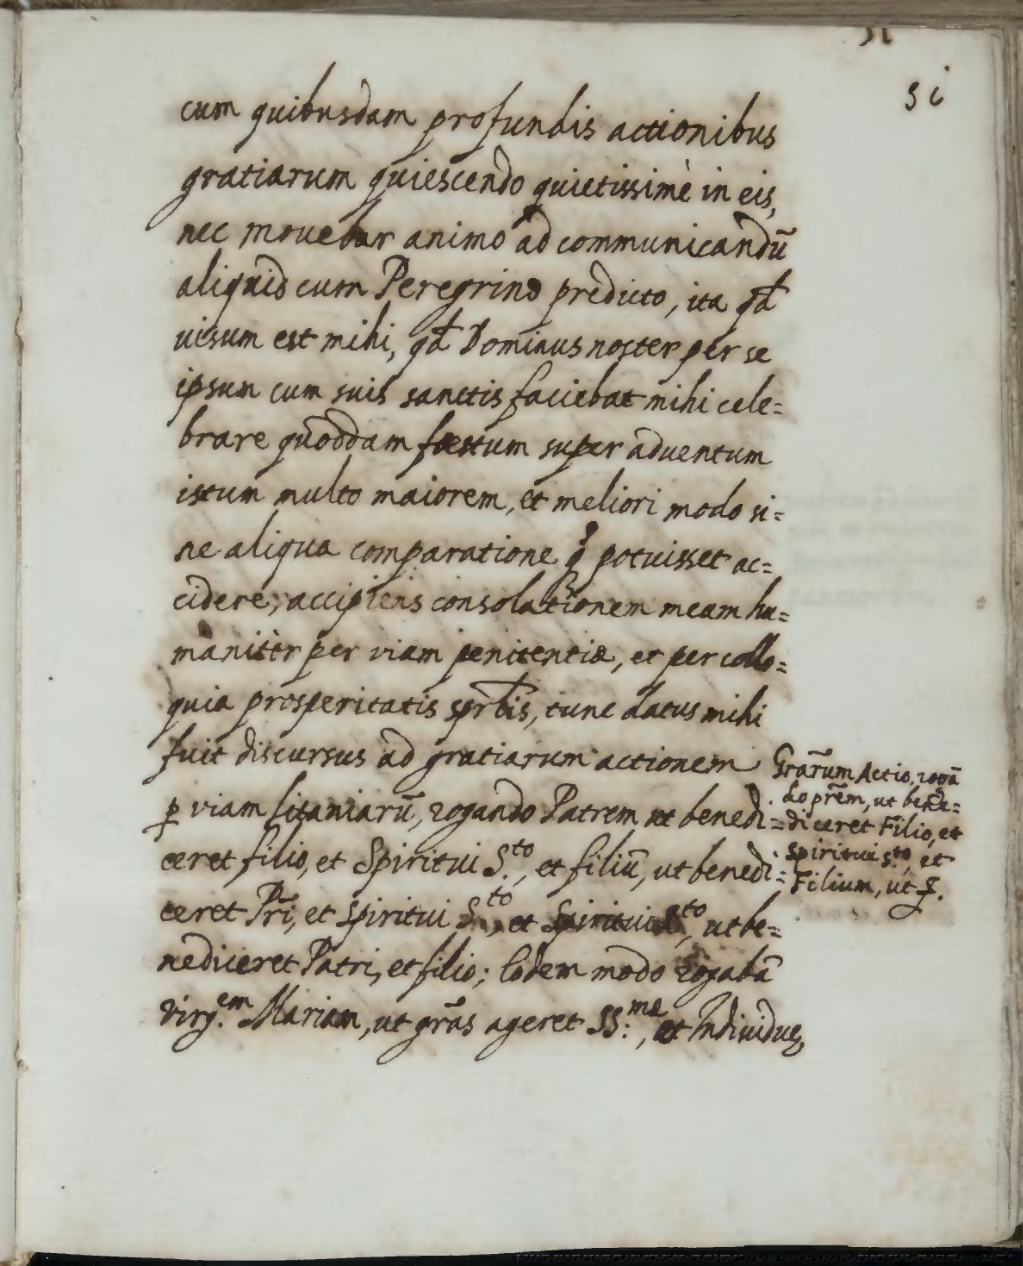 51
cum quibusdam profundis actionibus
gratiarum quiescendo quietissimè in eis,
nec movebar animo ad communicandū
aliquid cum Peregrino predicto, ita qd
uisum est mihi, qd Dominus noster per se
ipsum cum suis sanctis faciebat mihi cele=
brare quoddam festum super aduentum
istum multo maiorem, et meliori modo si=
ne aliqua comparatione q̃ potuisset ac=
cidere, accipiens consolationem meam hu=
manitèr per viam penitentiæ, et per collo=
quia prosperitatis sprt̃is, tunc datus mihi
fuit discursus ad gratiarum actionem
ꝑ viam litaniarū, rogando Patrem ut benedi=
ceret filio, et Spiritui S.to, et filiū, ut benedi=
ceret Pr̃i, et Spiritui S.to, et Spiritui S.to, ut be=
nediceret Patri, et filio; Eodem modo rogabā
virg.em Mariam, ut gr̃as ageret SS:me, et Individuę
Grãrum Actio, rogã
do pr̃em, ut bene=
diceret Filio, et
Spiritui S.to, et
Filium, ut ꝑ.